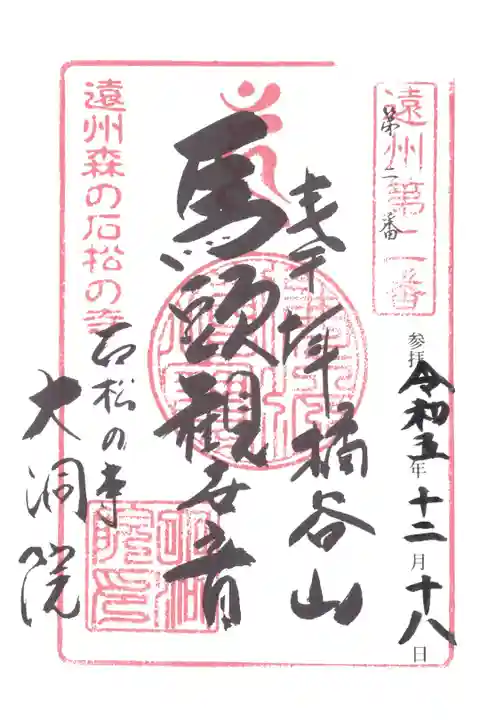 遠州第二番
第二番
参拝令和五年十二月十八日
奉拝橘谷山
馬頭観世音
遠州森の石松の寺
石松の寺
大洞院